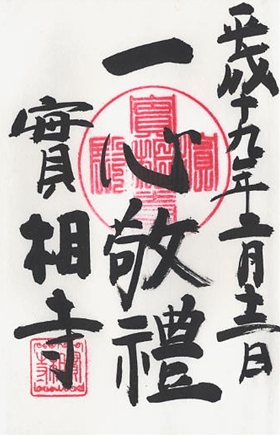 平成十九年二月十二日
一心敬禮
實相寺